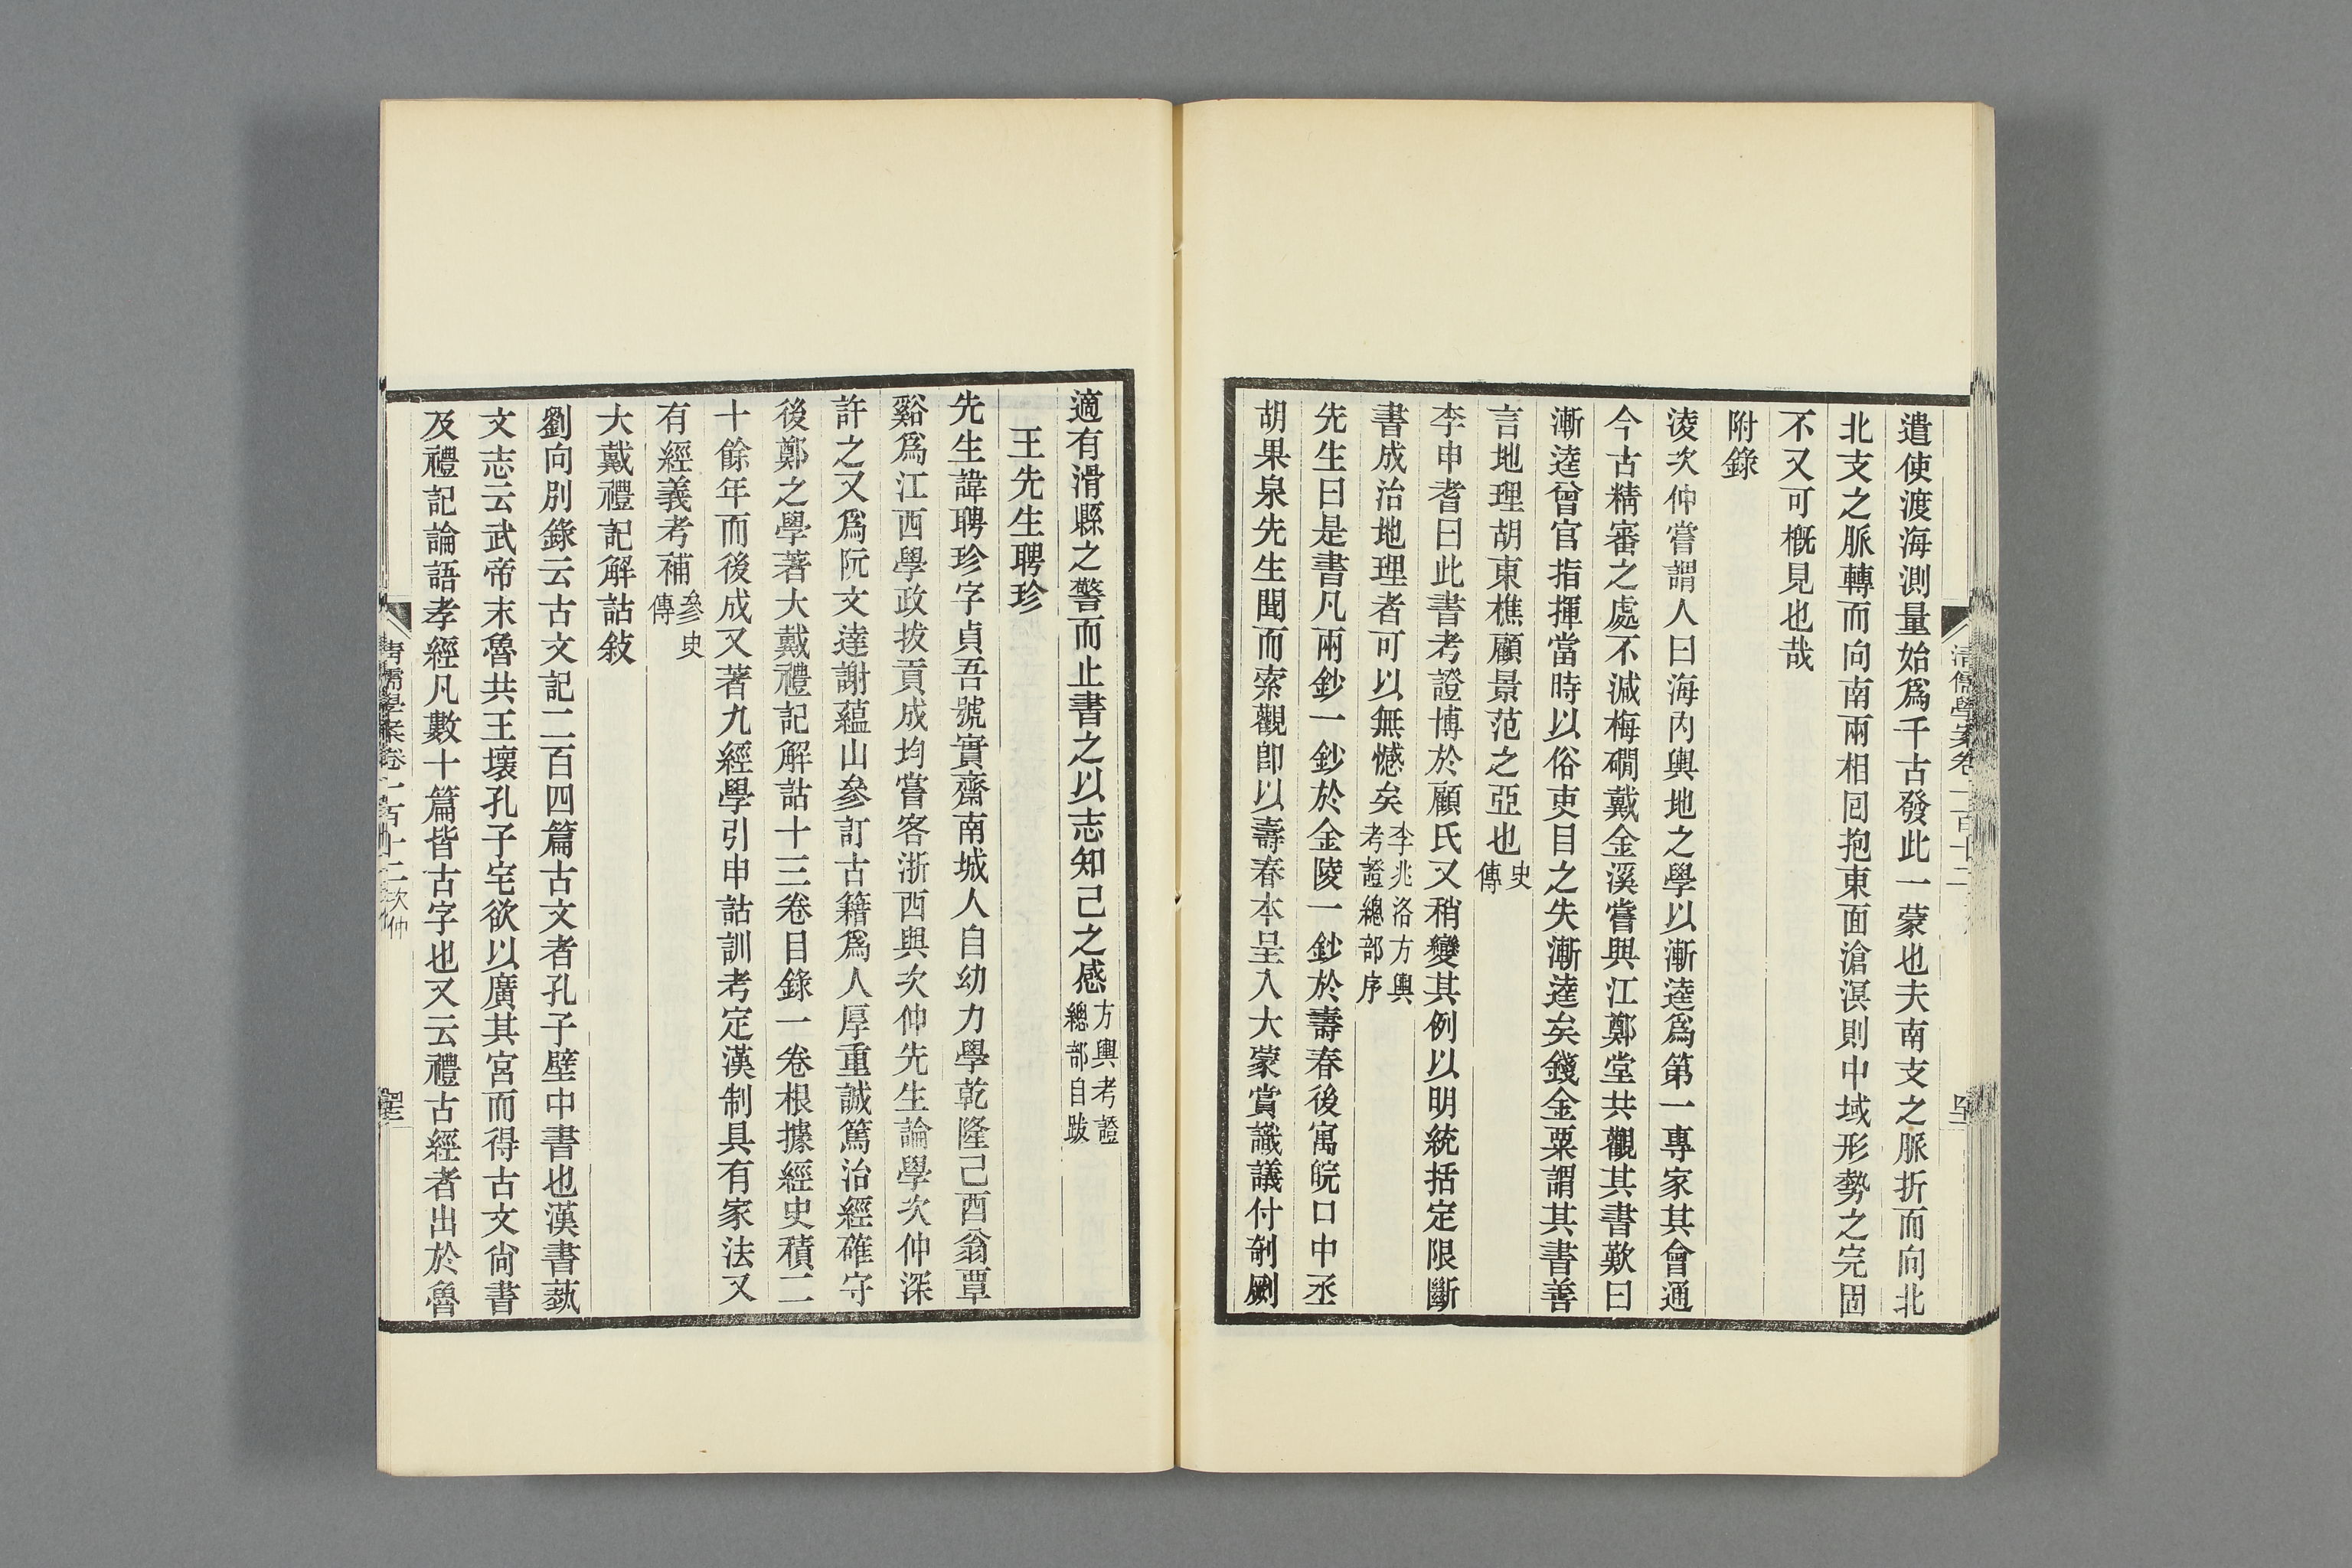 遣使渡海測量始爲千古發此一蒙也夫南支之脈折而向北
北支之脈轉而向南兩相回抱東面滄溟則中域形勢之完固
不又可概見也哉
附錄
淩次仲嘗謂人曰海內輿地之學以漸逵爲第一專家其會通
今古精審之處不減梅磵戴金溪嘗與江鄭堂共觀其書歎曰
漸逵曾官指揮當時以俗吏目之失漸逵矣錢金粟謂其書善
言地理胡東樵顧景范之亞也史傳
李申耆曰此書考證博於顧氏又稍變其例以明統括定限斷
書成治地理者可以無憾矣李兆洛方輿考證總部序
先生曰是書凡兩鈔一鈔於金陵一鈔於壽春後寓皖口中丞
胡果泉先生聞而索觀卽以壽春本呈入大蒙賞識議付剞劂
適有滑縣之警而止書之以志知己之感方輿考證總部自跋
王先生聘珍
先生諱聘珍字貞吾號實齋南城人自幼力學乾隆己酉翁覃
谿爲江西學政拔貢成均嘗客浙西與次仲先生論學次仲深
許之又爲阮文達謝蘊山參訂古籍爲人厚重誠篤治經確守
後鄭之學著大戴禮記解詁十三卷目錄一卷根據經史積二
十餘年而後成又著九經學引申詁訓考定漢制具有家法又
有經義考補參史傳
大戴禮記解詁敍
劉向別錄云古文記二百四篇古文者孔子壁中書也漢書蓺
文志云武帝末魯共王壞孔子宅欲以廣其宮而得古文尙書
及禮記論語孝經凡數十篇皆古字也又云禮古經者出於魯
清儒學案卷一百十二次仲